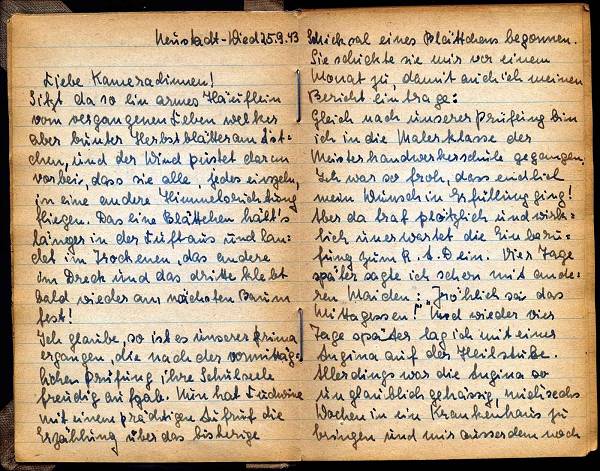 Neustadt-Wied 25.9.43
Liebe Kameradinnen!
Sitzt da so ein armes Häuflein
vom vergangenen Leben welker
aber bunter Herbstblätter am Äst-
chen, und der Wind pustet daran
vorbei, dass sie alle, jedes einzeln,
in eine andere Himmelsrichtung
fliegen. Das eine Blättchen hält's
länger in der Luft aus und lan-
det im Trockenen, das andere
im Dreck und das dritte klebt
bald wieder am nächsten Baum
fest!
Ich glaube, so ist es unserer Prima
ergangen, die nach der vormittäg-
lichen Prüfung ihre Schulseele
freudig aufgab. Nun hat Ludwine
mit einem prächtigen Aufruf die
Erzählung über das bisherige
Schicksal eines Blättchens begonnen.
Sie schickte sie mir vor einem
Monat zu, damit auch ich meinen
Bericht eintrage:
Gleich nach unserer Prüfung bin
ich in die Malerklasse der
Meisterhandwerkerschule gegangen.
Ich war so froh, dass endlich
mein Wunsch in Erfüllung ging!
Aber da traf plötzlich und wirk-
lich unerwartet die Einberu-
fung zum R.A.D. ein. Vier Tage
später sagte ich schon mit ande-
ren Maiden: „Fröhlich sei das
Mittagessen!" Und wieder vier
Tage später lag ich mit einer
Angina auf der Heilstube.
Allerdings war die Angina so
unglaublich gehässig, mich sechs
Wochen in ein Krankenhaus zu
bringen und mir ausserdem noch